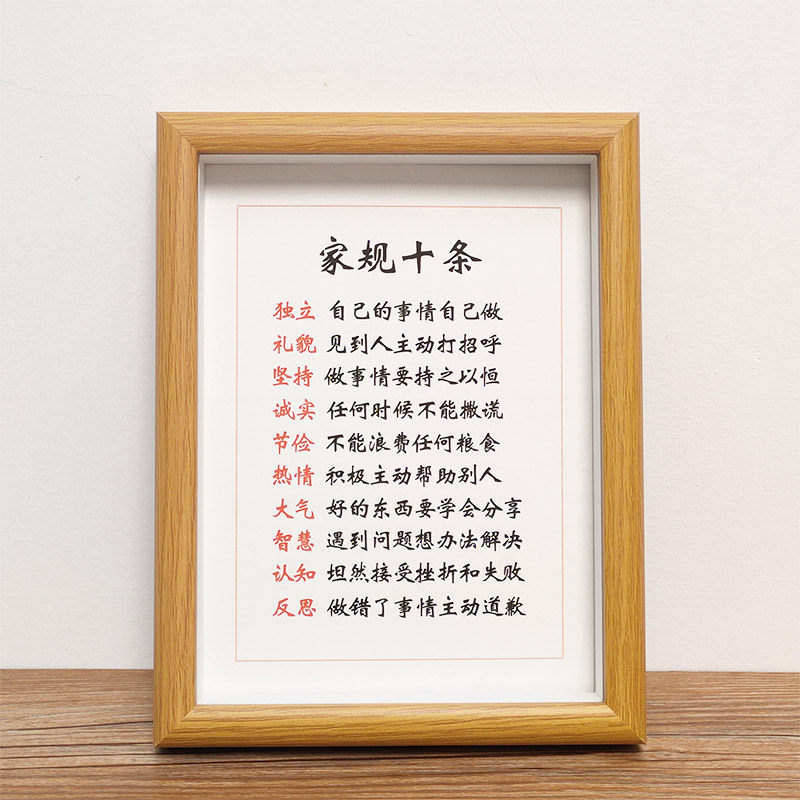 家规十条
独立 自己的事情自己做
礼貌 见到人主动打招呼
坚持 做事情要持之以恒
诚实 任何时候不能撒谎
节俭 不能浪费任何粮食
热情 积极主动帮助别人
大气 好的东西要学会分享
智慧 遇到问题想办法解决
认知 坦然接受挫折和失败
反思 做错了事情主动道歉